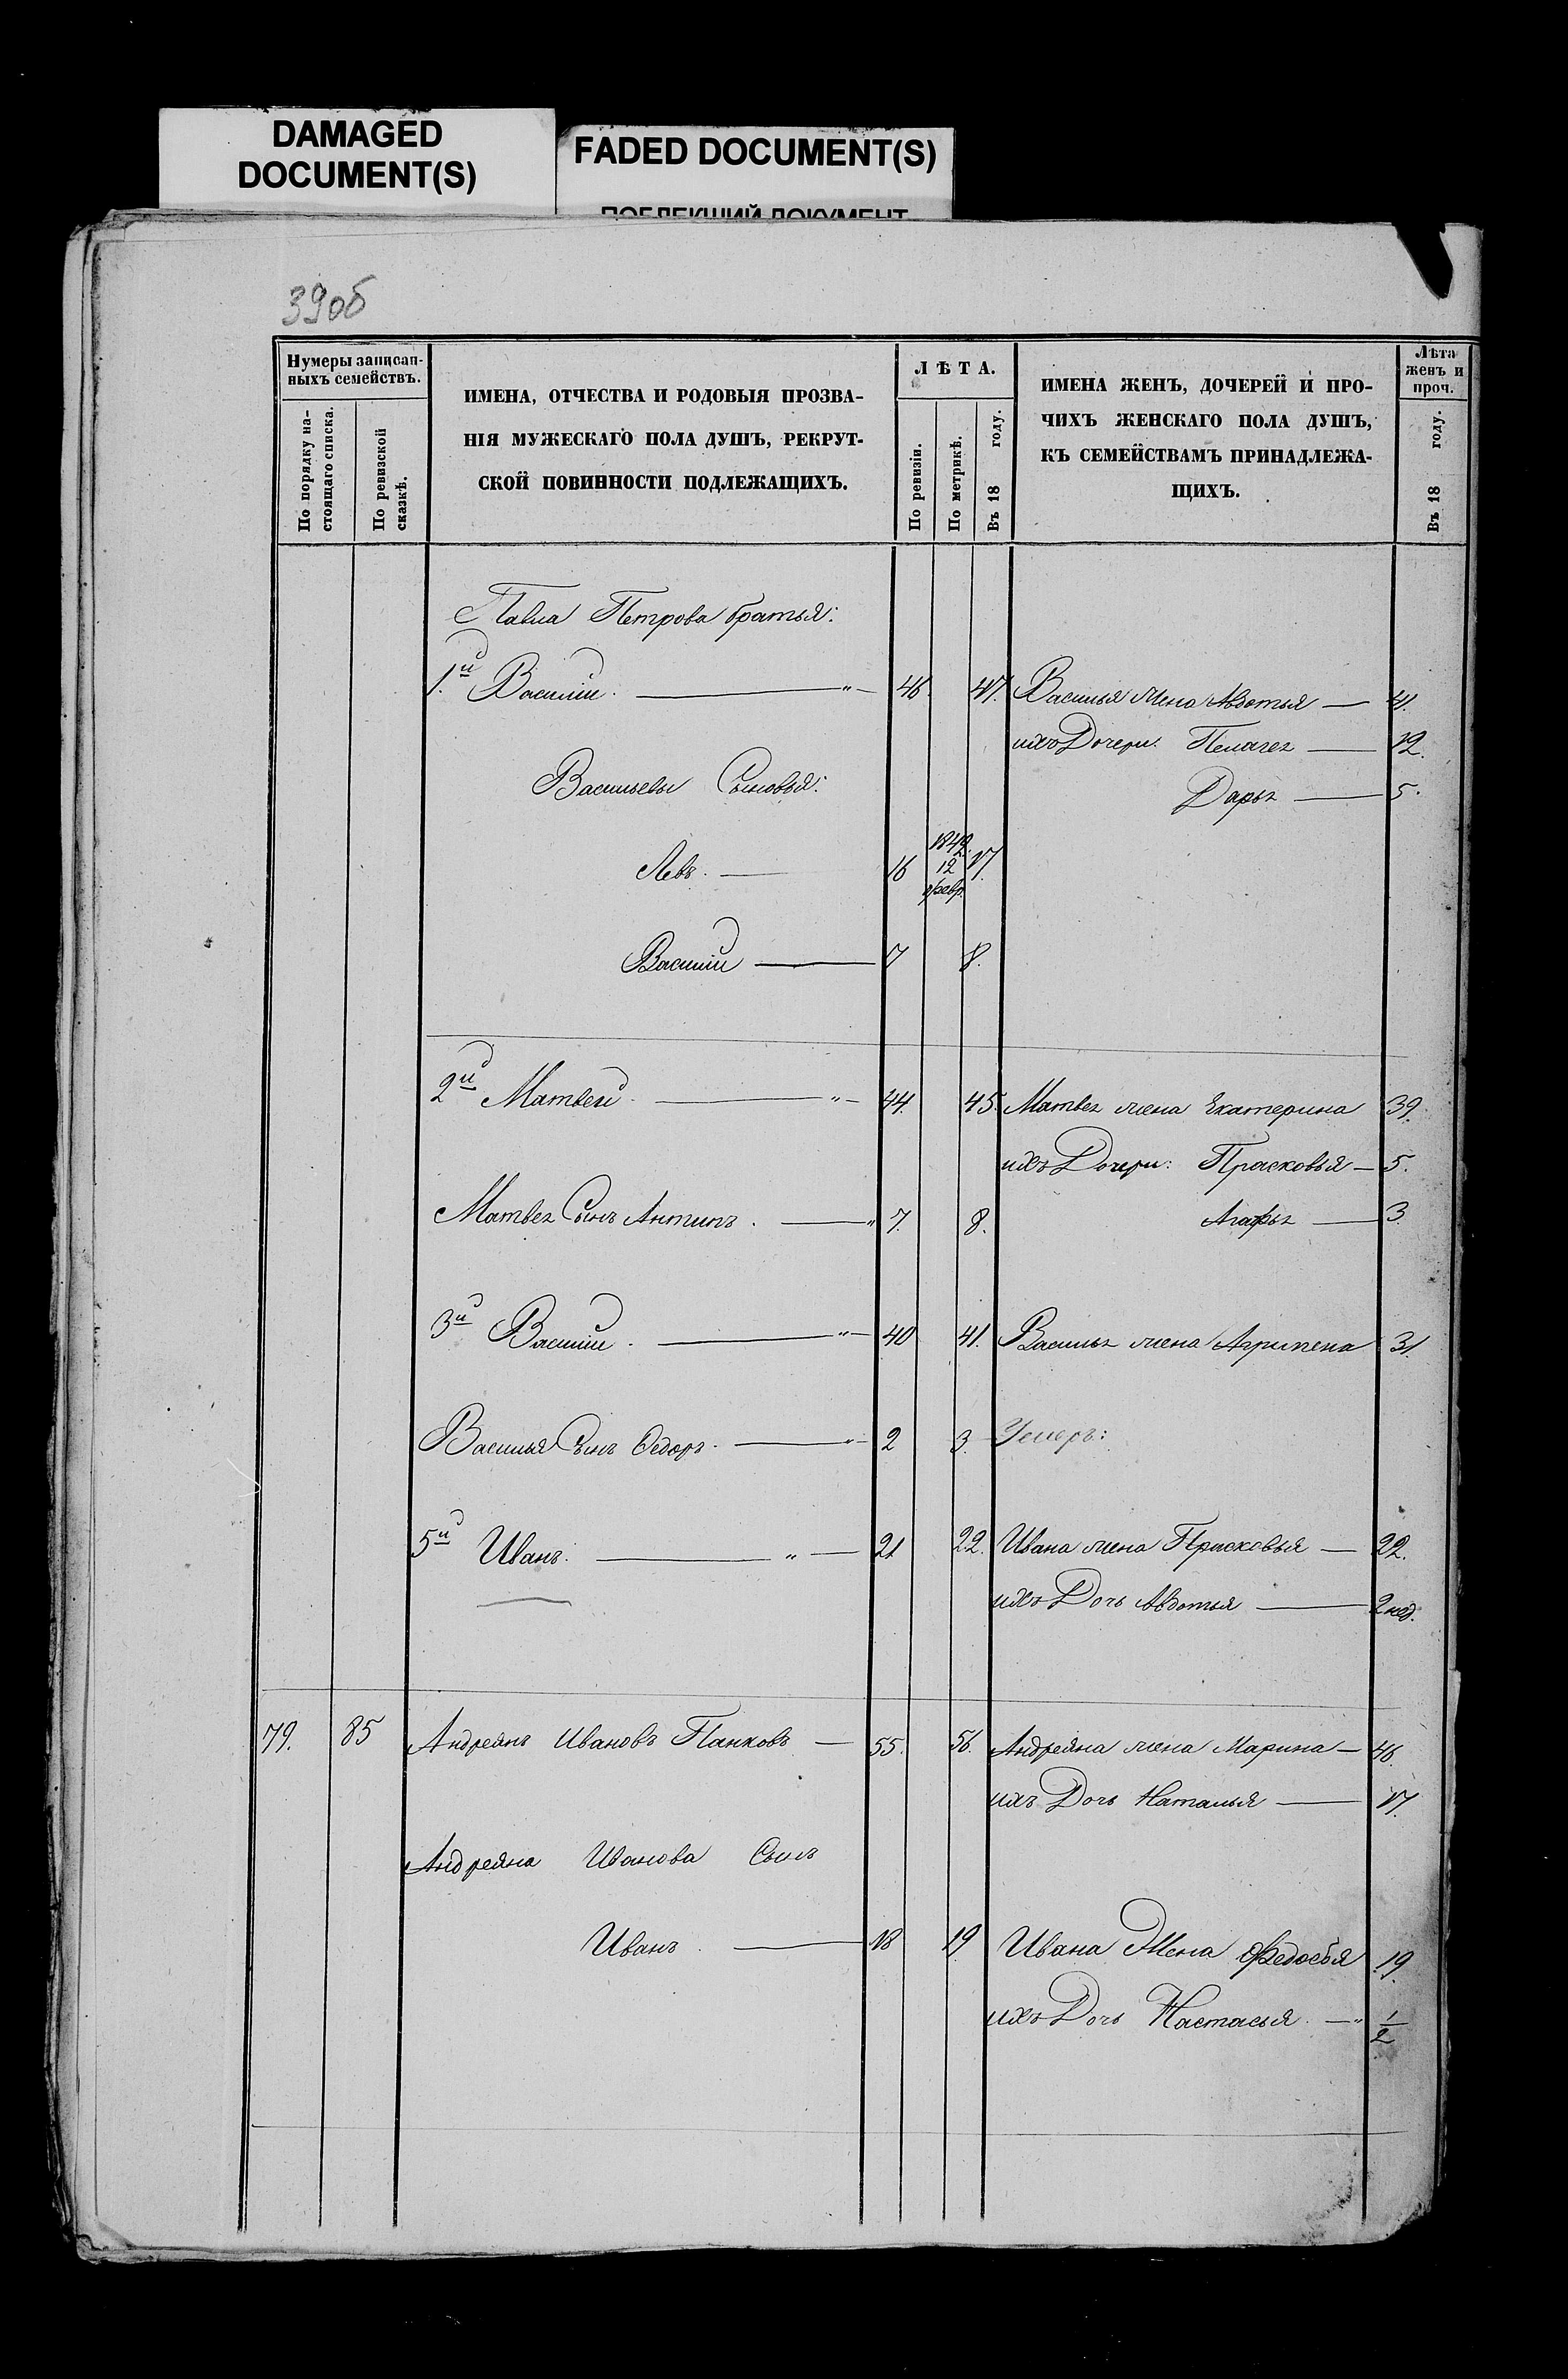 DAMAGED
DOCUMENT(S)
FADED DOCUMENT(S)
ПОБЛЕКШИЙ ДОКУМЕНТ
39об
Нумеры записан-
ныхъ семействъ.
По порядку на-
стоящаго списка.
По ревизской
сказкѣ.
ИМЕНА, ОТЧЕСТВА И РОДОВЫЯ ПРОЗВА-
НІЯ МУЖЕСКАГО ПОЛА ДУШЪ, РЕКРУТ-
СКОЙ ПОВИННОСТИ ПОДЛЕЖАЩИХЪ.
ЛѢТА.
По ревизіи.
По метрикѣ.
Въ 18 году.
ИМЕНА ЖЕНЪ, ДОЧЕРЕЙ И ПРО-
ЧИХЪ ЖЕНСКАГО ПОЛА ДУШЪ,
КЪ СЕМЕЙСТВАМЪ ПРИНАДЛЕЖА-
ЩИХЪ.
Лѣта
женъ и
проч.
Въ 18 году.
Павла Петрова братья:
1.й Василій. — " — 46. 47. Василья жена Авдотья — 41.
ихъ Дочери: Пелагея — 12.
Васильевы Сыновья:
Дарья — 5.
Левъ. — 16 1842. 12 февр. 17.
Василій — 7 8.
2й Матвей. — " — 44. 45. Матвея жена Екатерина 39.
ихъ Дочери: Прасковья — 5.
Матвея Сынъ Антипъ. — " 7. 8. Агафья — 3
3й Василій. — " — 40 41. Василья жена Агрипена 31.
Василья Сынъ Ѳедоръ. — " — 2 3. Умеръ:
5й Иванъ. — " — 21 22. Ивана жена Прасковья — 22.
ихъ Дочь Авдотья — 2 нед.
79. 85 Андреянъ Ивановъ Панковъ — 55. 56. Андреяна жена Марина — 46.
ихъ Дочь Наталья — 17.
Андреяна Иванова Сынъ
Иванъ. — 18 19 Ивана Жена Федосья 19.
ихъ Дочь Настасья. — " 1/2